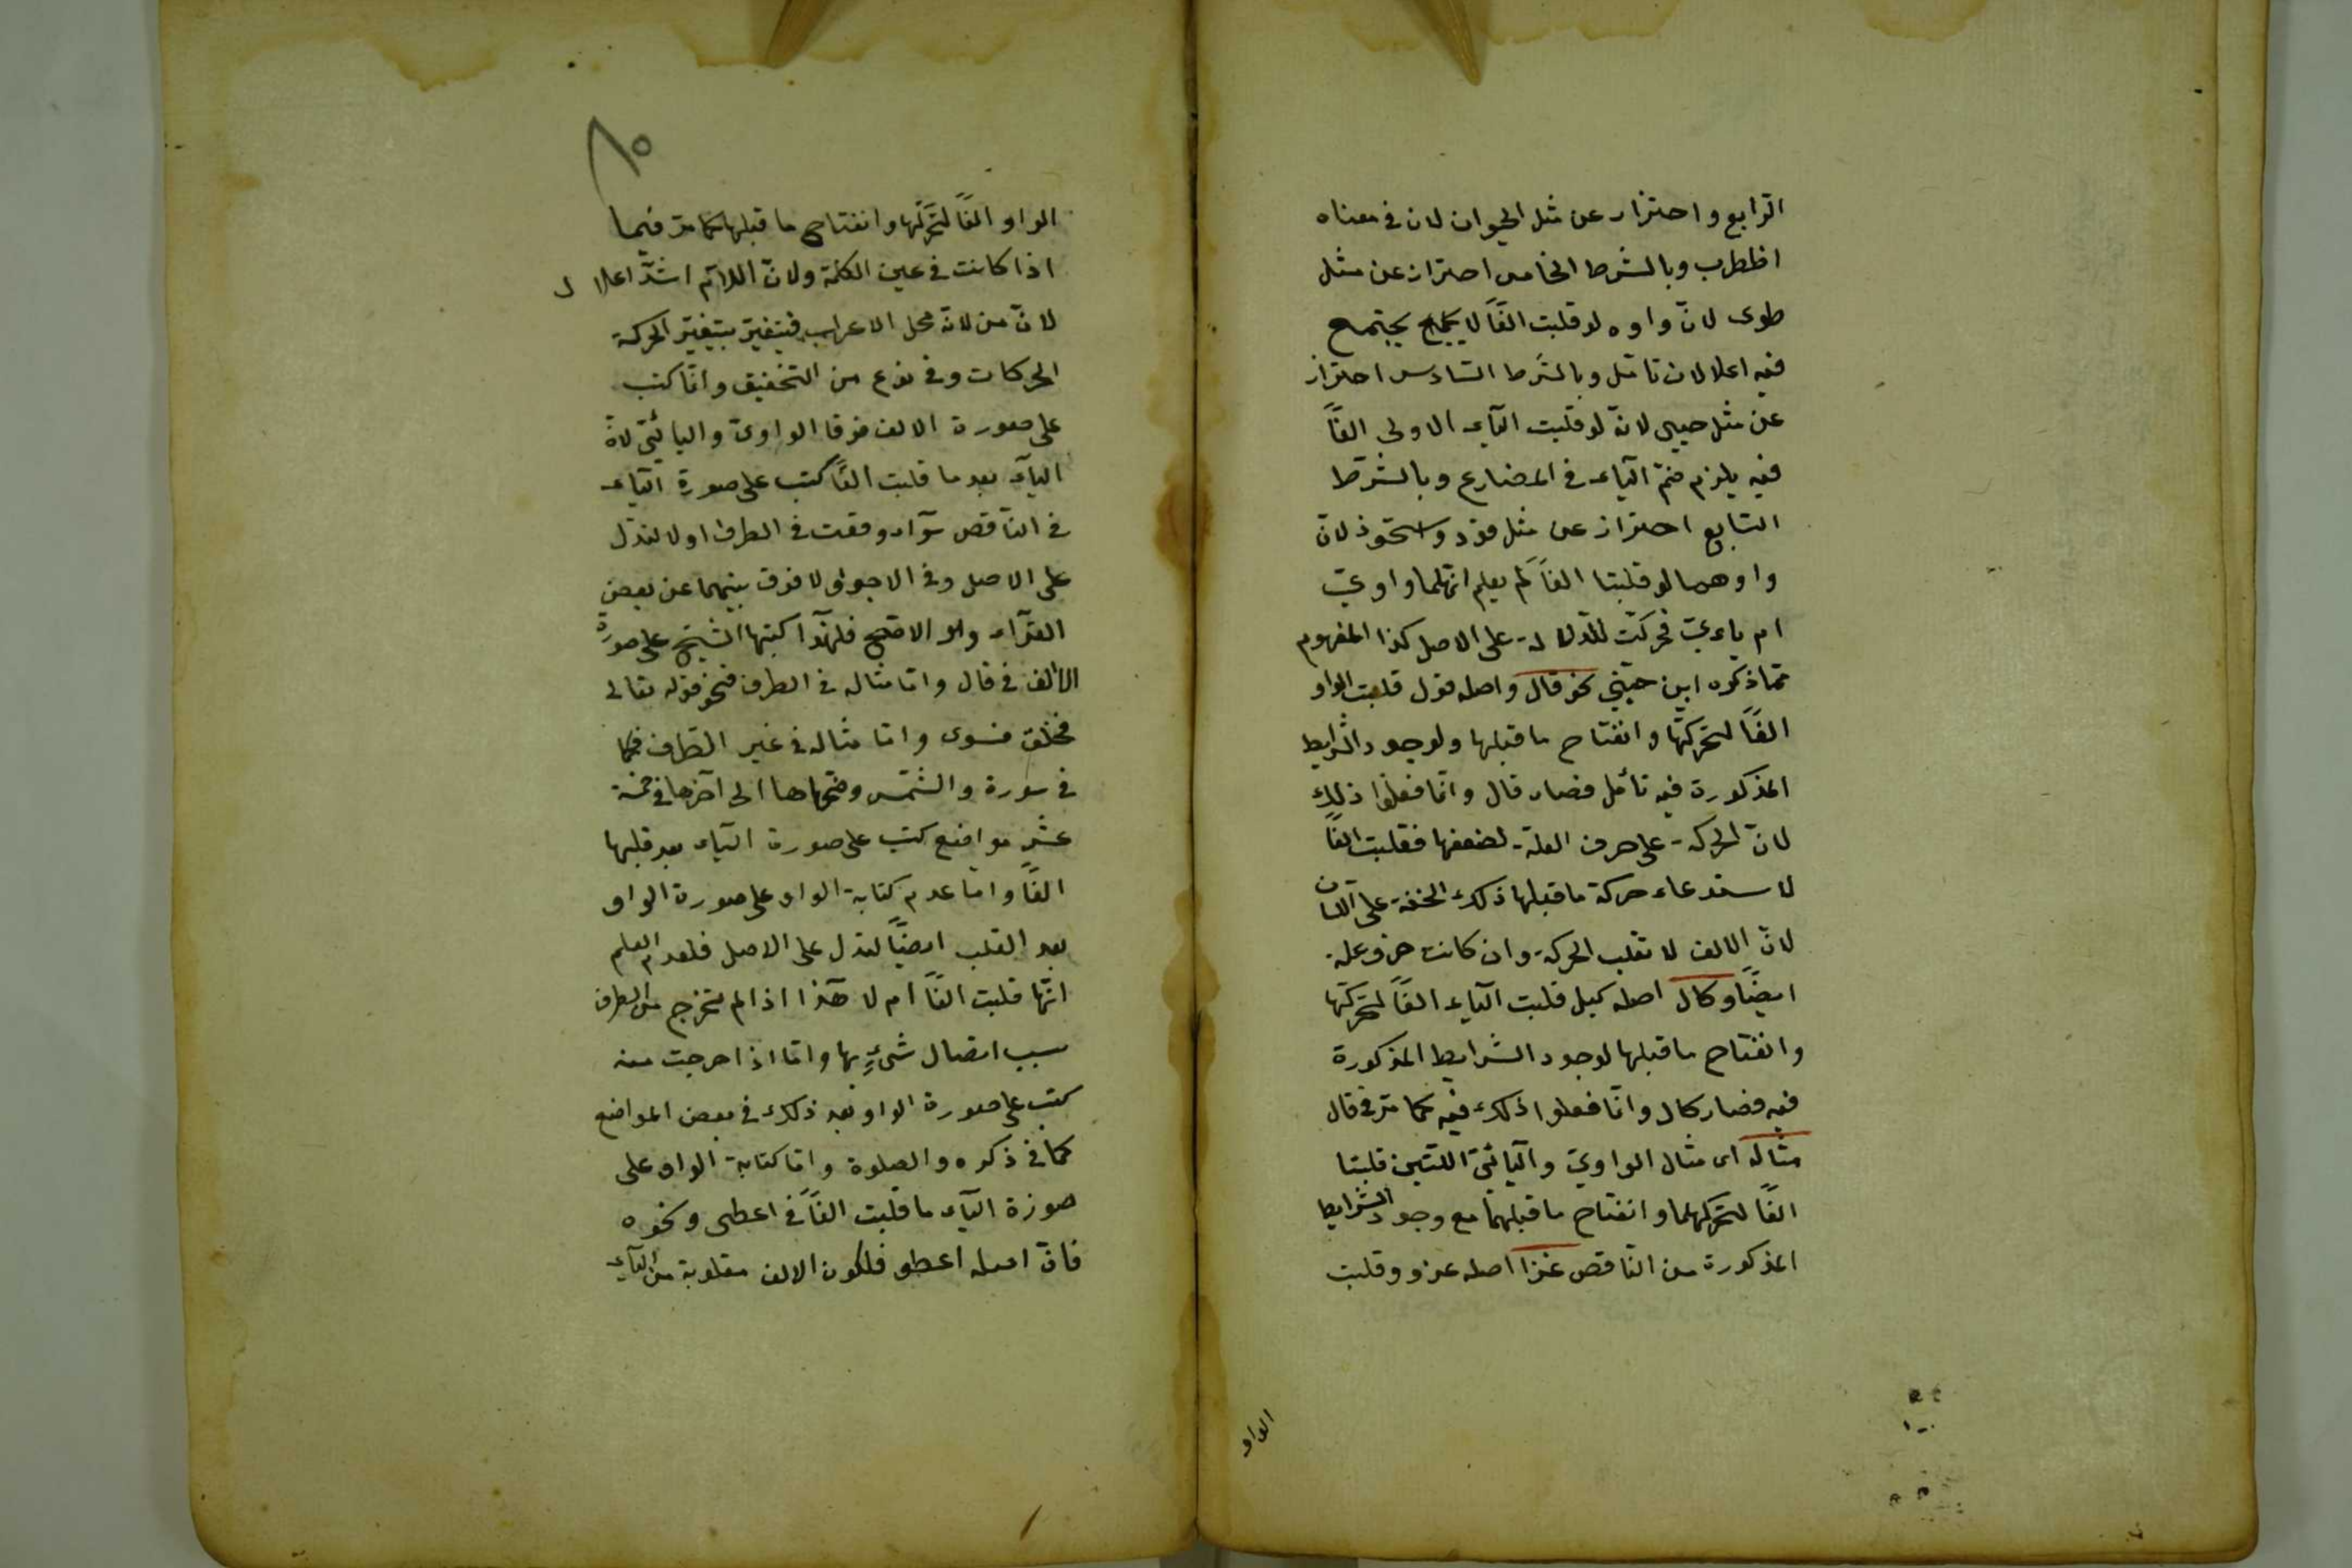 الرابع واحتراز عن مثل الحيوان لان في معناه
اظطرب وبالشرط الخامس احتراز عن مثل
طوى لانّ واوه لو قلبت الفاً لا يجتمع
فيه اعلالان تامّل وبالشّرط السّادس احتراز
عن مثل حيى لانّه لو قلبت الياء الاولى الفاً
فيه يلزم ضمّ الياء في المضارع وبالشّرط
السّابع احتراز عن مثل قود واستحوذ لانّ
واوهما لو قلبتا الفاً لم يعلم انّهما واويّ
ام يائيّ فحرّكت للدلالة على الاصل كذا المفهوم
ممّا ذكره ابن جنّي نحو قال واصله قول قلبت الواو
الفاً لتحرّكها وانفتاح ما قبلها ولوجود الشرايط
المذكورة فيه تأمّل فصار قال وانّما فعلوا ذلك
لانّ الحركة على حرف العلة لضعفها فقلبت الفاً
لاستدعاء حركة ما قبلها ذلك الخفة على اللسان
لانّ الالف لا تقلب الحركة وان كانت حرف علة
ايضاً وكال اصله كيل قلبت الياء الفاً لتحرّكها
وانفتاح ما قبلها لوجود الشرايط المذكورة
فيه فصار كال وانّما فعلوا ذلك فيه كما مرّ في قال
مثاله اى مثال الواويّ واليائيّ اللتين قلبتا
الفاً لتحرّكهما وانفتاح ما قبلهما مع وجود الشرايط
المذكورة من النّاقص غزا اصله غزو وقلبت
الواو
٨٥
الواو الفاً لتحرّكها وانفتاح ما قبلها كما مرّ فيما
اذا كانت في عين الكلمة ولانّ اللام اشدّ اعلالا
لانّ من لانّه محل الاعراب فيتغيّر بتغيّر الحركة
الحركات وفي نوع من التخفيف وانّما كتب
على صورة الالف فرقا الواويّ واليائيّ لانّ
الياء بعد ما قلبت الفاً كتب على صورة الياء
في النّاقص سواء وقعت في الطرف اولا لتدلّ
على الاصل وفي الاجوف لا فرق بينهما عن بعض
القرّاء وهو الافصح فلهذا كتبها الشيخ على صورة
الالف في قال وامّا مثاله في الطرف فنحو قوله تعالى
فخلق فسوى وامّا مثاله في غير الطرف فكما
في سورة والشّمس وضحاها الى آخرها في خمسة
عشر مواضع كتب على صورة الياء بعد قلبها
الفاً وامّا عدم كتابة الواو على صورة الواو
بعد القلب ايضاً لتدل على الاصل فلعدم العلم
انّها قلبت الفاً ام لا هذا اذا لم تخرج من الطرف
بسبب اتصال شيءٍ بها وامّا اذا خرجت منه
كتب على صورة الواو بعد ذلك في بعض المواضع
كما في ذكره والصلوة وامّا كتابة الواو على
صورة الياء ما قلبت الفاً في اعطى ونحوه
فانّ اصله اعطو فلكون الالف مقلوبة من الياء